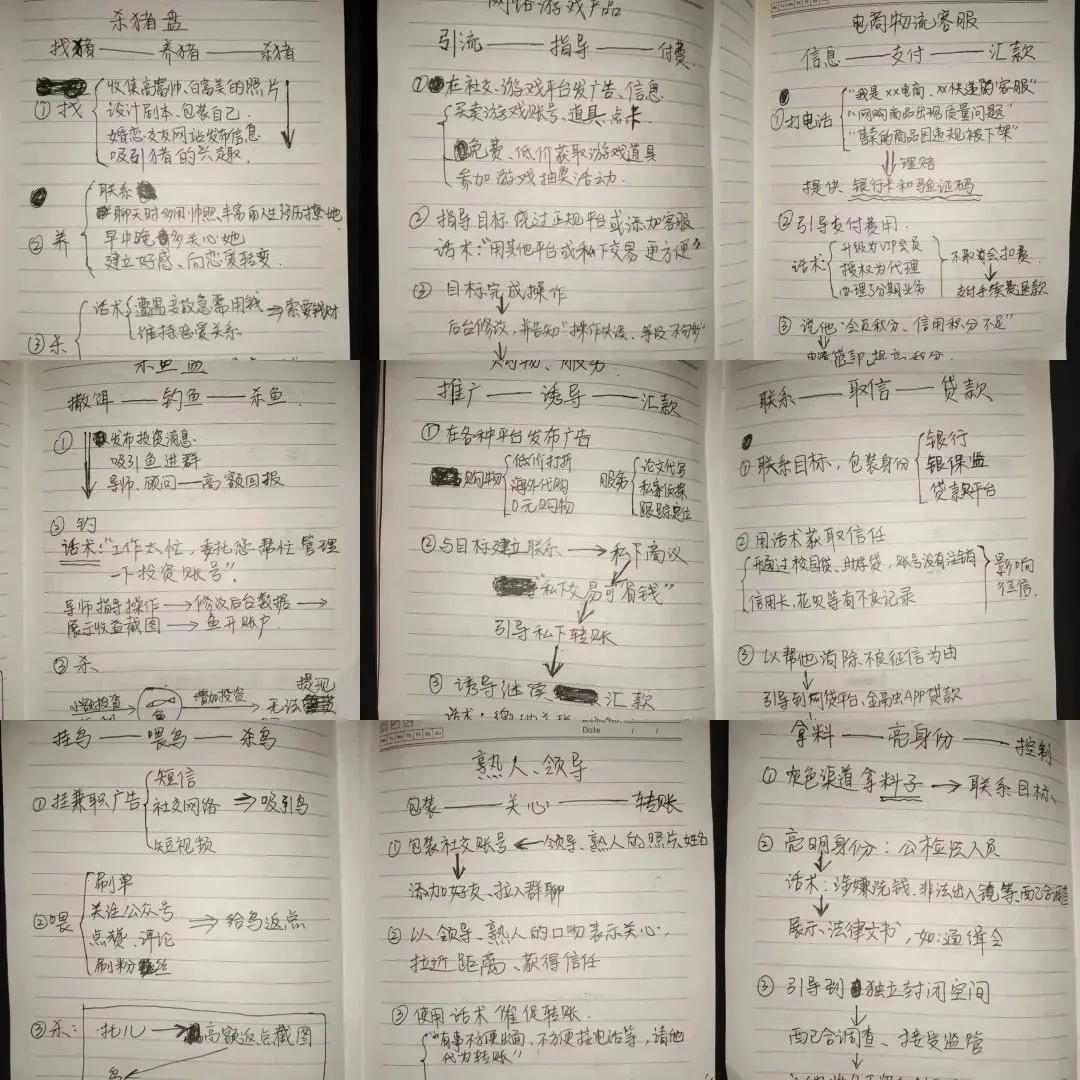 杀猪盘
找猪——养猪——杀猪
①找
收集高富帅、白富美的照片
设计剧本、包装自己
婚恋交友网站发布信息
吸引猪的兴趣.
②养
联系
聊天时多用帅照、丰富的人生经历撩她
早中晚多关心她
建立好感、向恋爱转变.
③杀
话术
遭遇变故急需用钱
维持恋爱关系
网络游戏产品
引流——指导——付费.
①在社交、游戏平台发广告、信息
买卖游戏账号、道具、点卡
免费、低价获取游戏道具
参加游戏抽奖活动.
②指导目标绕过正规平台或添加客服
话术:“用其他平台或私下交易更方便”
③目标完成操作
后台修改,并告知“操作失误、等级不够”
电商物流客服
信息——支付——汇款
①打电话
“我是XX电商、XX快递的‘客服’”
“网购商品出现质量问题”
“售卖的商品因违规被下架”
理赔
提供银行卡和验证码
②引导支付费用
话术:
升级为VIP会员
授权为代理
办理了分期业务
不取消会扣费
支付手续费退款
③说他“会员积分、信用积分不足”
杀鱼盘
撒饵——钓鱼——杀鱼.
①
发布投资消息
吸引鱼进群
导师、顾问——高额回报
②钓
话术:“工作太忙,委托您帮忙管理
一下投资账号”.
导师指导操作→修改后台数据→
展示收益截图→鱼开账户.
③杀
小额投资
鱼
增加投资
提现
无法
购物、服务.
推广——诱导——汇款
①在各种平台发布广告
购物
低价打折
海外代购
0元购物
服务
论文代写
私家侦探
跟踪定位
②与目标建立联系→私下商议
“私下交易可‘省钱’”
引导私下转账
③诱导继续汇款
联系——取信——贷款
①联系目标,包装身份
银行
银保监
贷款平台
②用话术获取信任
开通过校园贷、助学贷,账号没有注销
信用卡、花呗等有不良记录
影响
征信.
③以帮他消除不良征信为由
引导到网贷平台、金融APP贷款
挂鸟——喂鸟——杀鸟
①挂兼职广告
短信
社交网络
短视频
⇒吸引鸟
②喂
刷单
关注公众号
点赞、评论
刷粉丝
⇒给鸟返点
③杀:
托儿→高额返点截图
鸟
Date / /
熟人、领导
包装——关心——转账
①包装社交账号←领导、熟人的照片、姓名
添加好友、拉入群聊
②以领导、熟人的口吻表示关心.
拉近距离、获得信任
③使用话术催促转账.
“有事不方便出面、不方便接电话等,请他
代为转账”
拿料——亮身份——控制
①灰色渠道拿料子→联系目标、
②亮明身份:公检法人员
话术:涉嫌洗钱、非法出入镜等、配合调查
展示、法律文书,如:通缉令
③引导到独立封闭空间
配合调查、接受监管